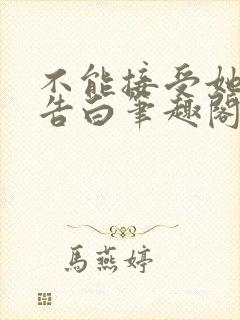 不能接受她
告白笔趣阁
馬燕婷